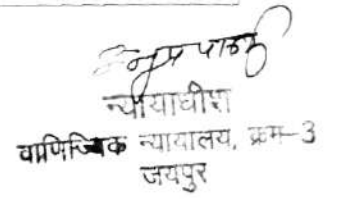 न्यायाधीश
वाणिज्यिक न्यायालय, क्रम-3
जयपुर